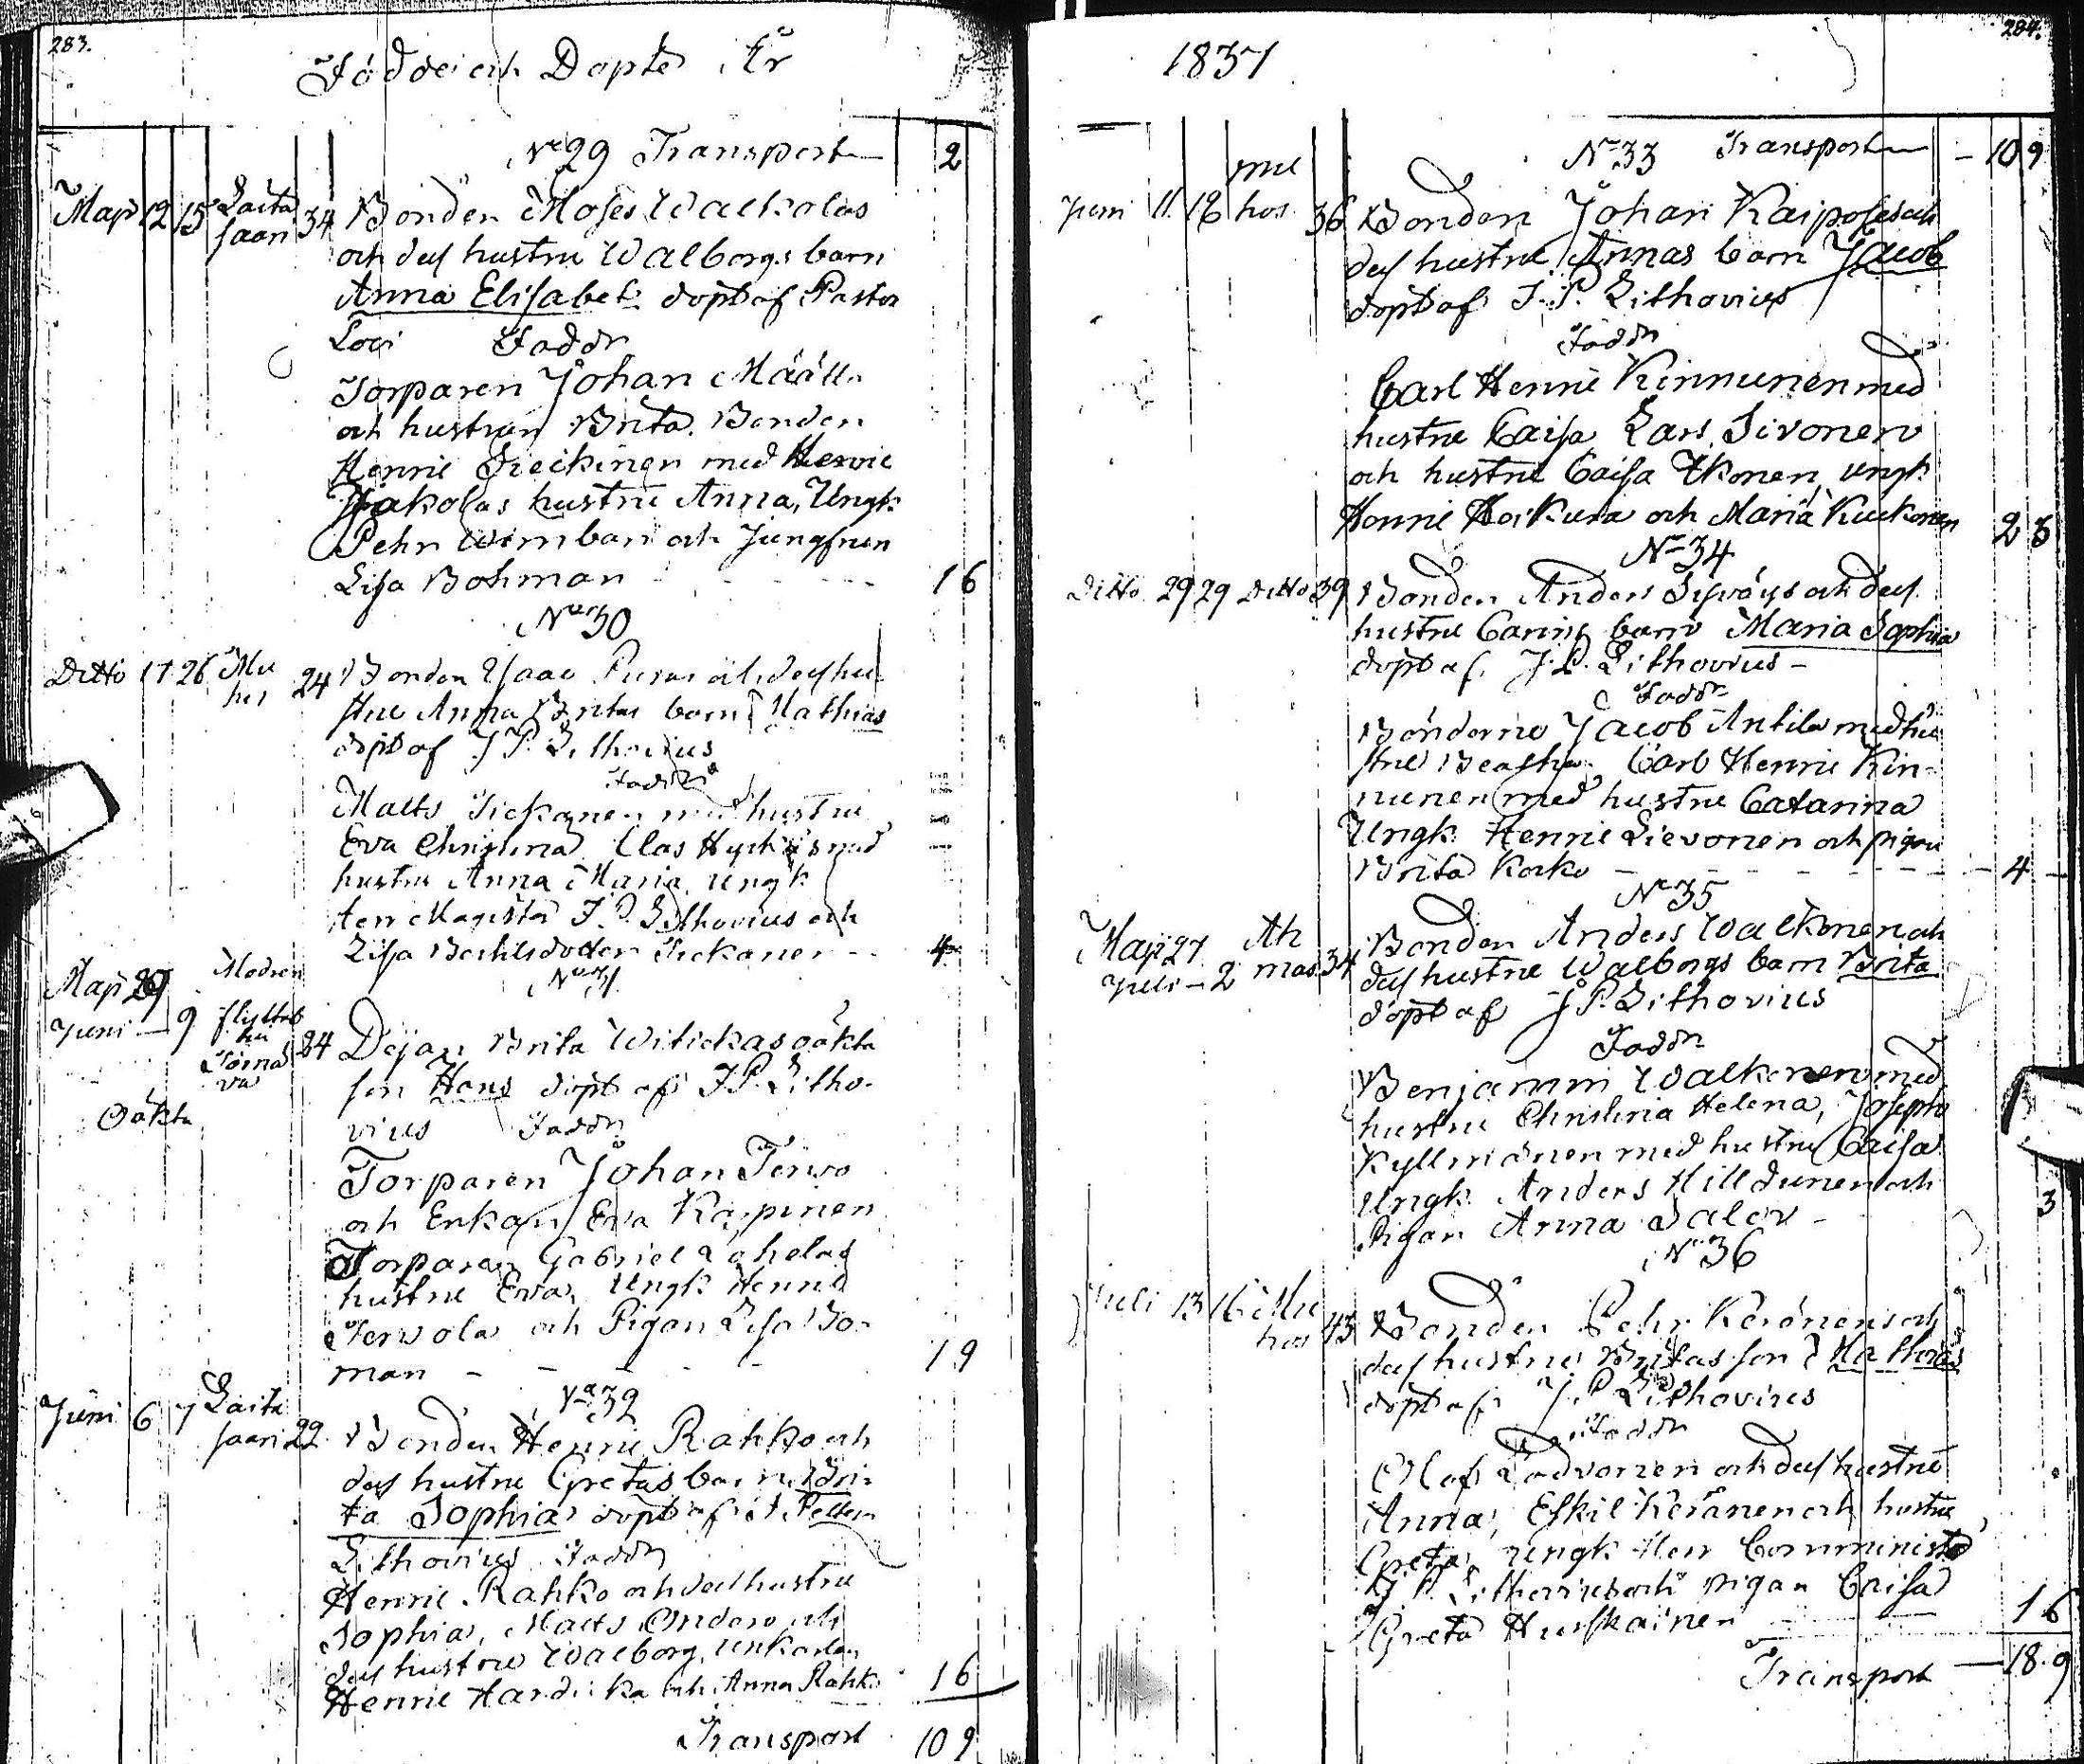 283.
Födde och Döpte År
No 29 Transport 2
Maji 12 15 Laita saari 34 Bonden Moses Walkolas
och dess hustru Walborgs barn
Anna Elisabet döpt af Pastor
Faddr
Torparen Johan Määtt
och hustrun Brita. Bonden
Henric med Henric
hustru Anna, Ungk.
Pehr och Jungfrun
Lisa Bohman 1 6
No 30
Ditto 17 26 Mu hos 24 Bonden Isaac Purus och dess hu
stru Anna Britas barn Mathias
döpt af J P Lithovius
Faddr
Matts Tickanen med hustru
Eva Christina Clas med
hustru Anna Maria ungk
Herr Magister J. P. Lithovius och
Lisa Tickanen 4
No 31
Maji 29 Modren
Juni 9 flyttat
24 Brita oäkta
son Hans döpt af J. P. Litho-
Oäkta
vius Faddr
Torparen Johan Terwo
och Enkan Eva Karpinen
Torparen Gabriel
hustru Eva, Ungk Henric
Terwola och Pigan Lisa Bo-
man 1 9
No 32
Juni 6 7 Laita saari 22 Bonden Henric Rahko och
dess hustru Gretas barn Bri-
ta Sophia döpt af J. Petter
Lithovius Faddr
Henric Rahko och dess hustru
Sophia, Matts och
dess hustru Walborg,
Henric och Anna Rahko 1 6
Transport 10 9
284.
1831
No 33 Transport 10 9
Juni 11. 12 Mu hos 36 Bonden Johan och
dess hustru Annas barn Jacob
döpt af J. P. Lithovius
Faddr
Carl Henric Kinnunen med
hustru Caisa Lars Sivonen
och hustru Caisa Ikonen, ungk
Henric och Maria Kuckonen 2 3
No 34
Ditto 29 29 Ditto 39 Bonden Anders och dess
hustru Carins barn Maria Sophia
döpt af J. P. Lithovius
Faddr
Bönderne Jacob Antila med hu
stru Beatha Carl Henric Kin-
nunen med hustru Catarina
Ungk. Henric Sievonen och pigan
Brita Korko 4
No 35
Maji 27
Juli 2 Ah mas 34 Bonden Anders Walkonen och
dess hustru Walborgs barn Brita
döpt af J P. Lithovius
Faddr
Benjamin Walkonen med
hustru Christina Helena, Joseph
Kyllmänen med hustru Caisa
Ungk. Anders och
Pigan Anna 3
No 36
Juli 13 16 Mu hos 43 Bonden Pehr Keränens och
dess hustrus Britas son Mathias
döpt af J. P. Lithovius
Faddr
Olof och dess hustru
Anna, Eskil Keränen och hustru
Greta, ungk Herr Comminister
J P. Lithovius och pigan Caisa
Greta Huuskainen 1 6
Transport 18 9